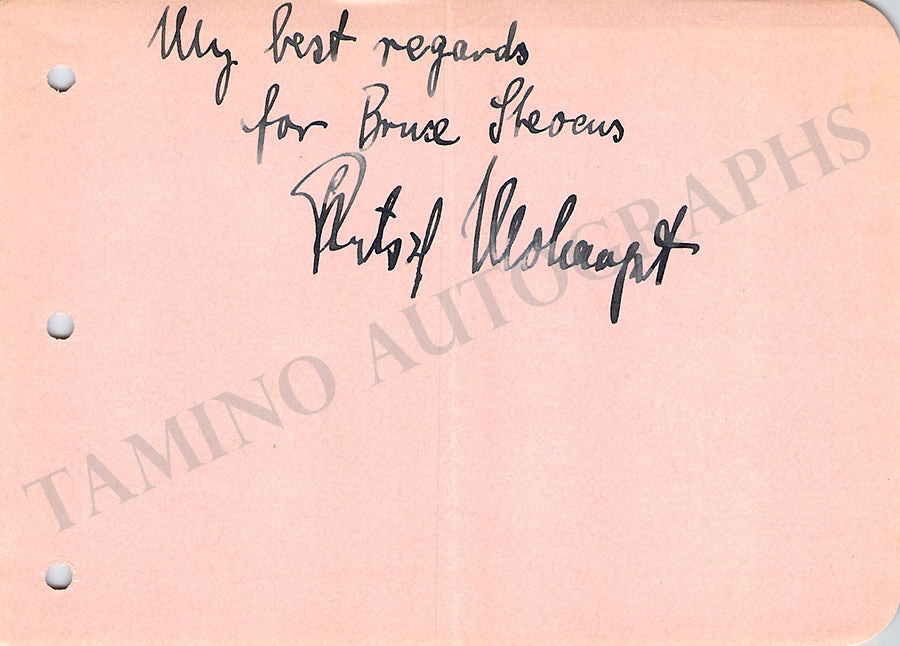 My best regards
for Bruce Stevens
Mohaupt
TAMINO AUTOGRAPHS